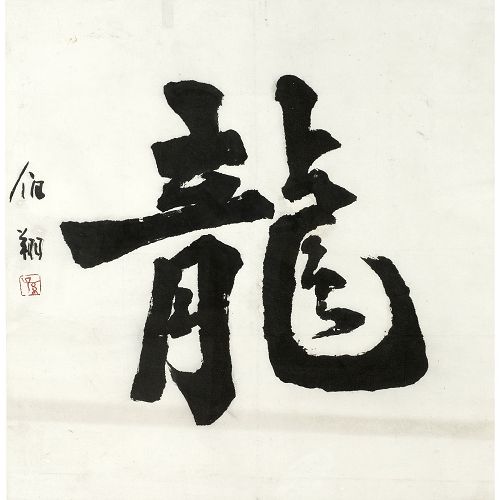 龍
伯翔